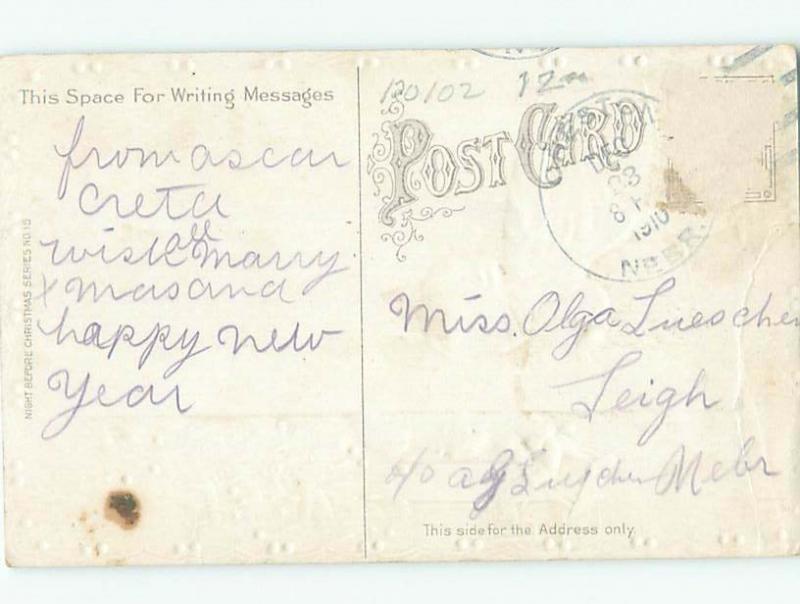 This Space For Writing Messages
from ascar
Creta
wish all marry
xmas and a
happy new
Year
NIGHT BEFORE CHRISTMAS SERIES NO. 15
120102 12
POST CARD
DEC
23
8
1910
NEBR.
Miss. Olga Luescher
Leigh
c/o Nebr
This side for the Address only.